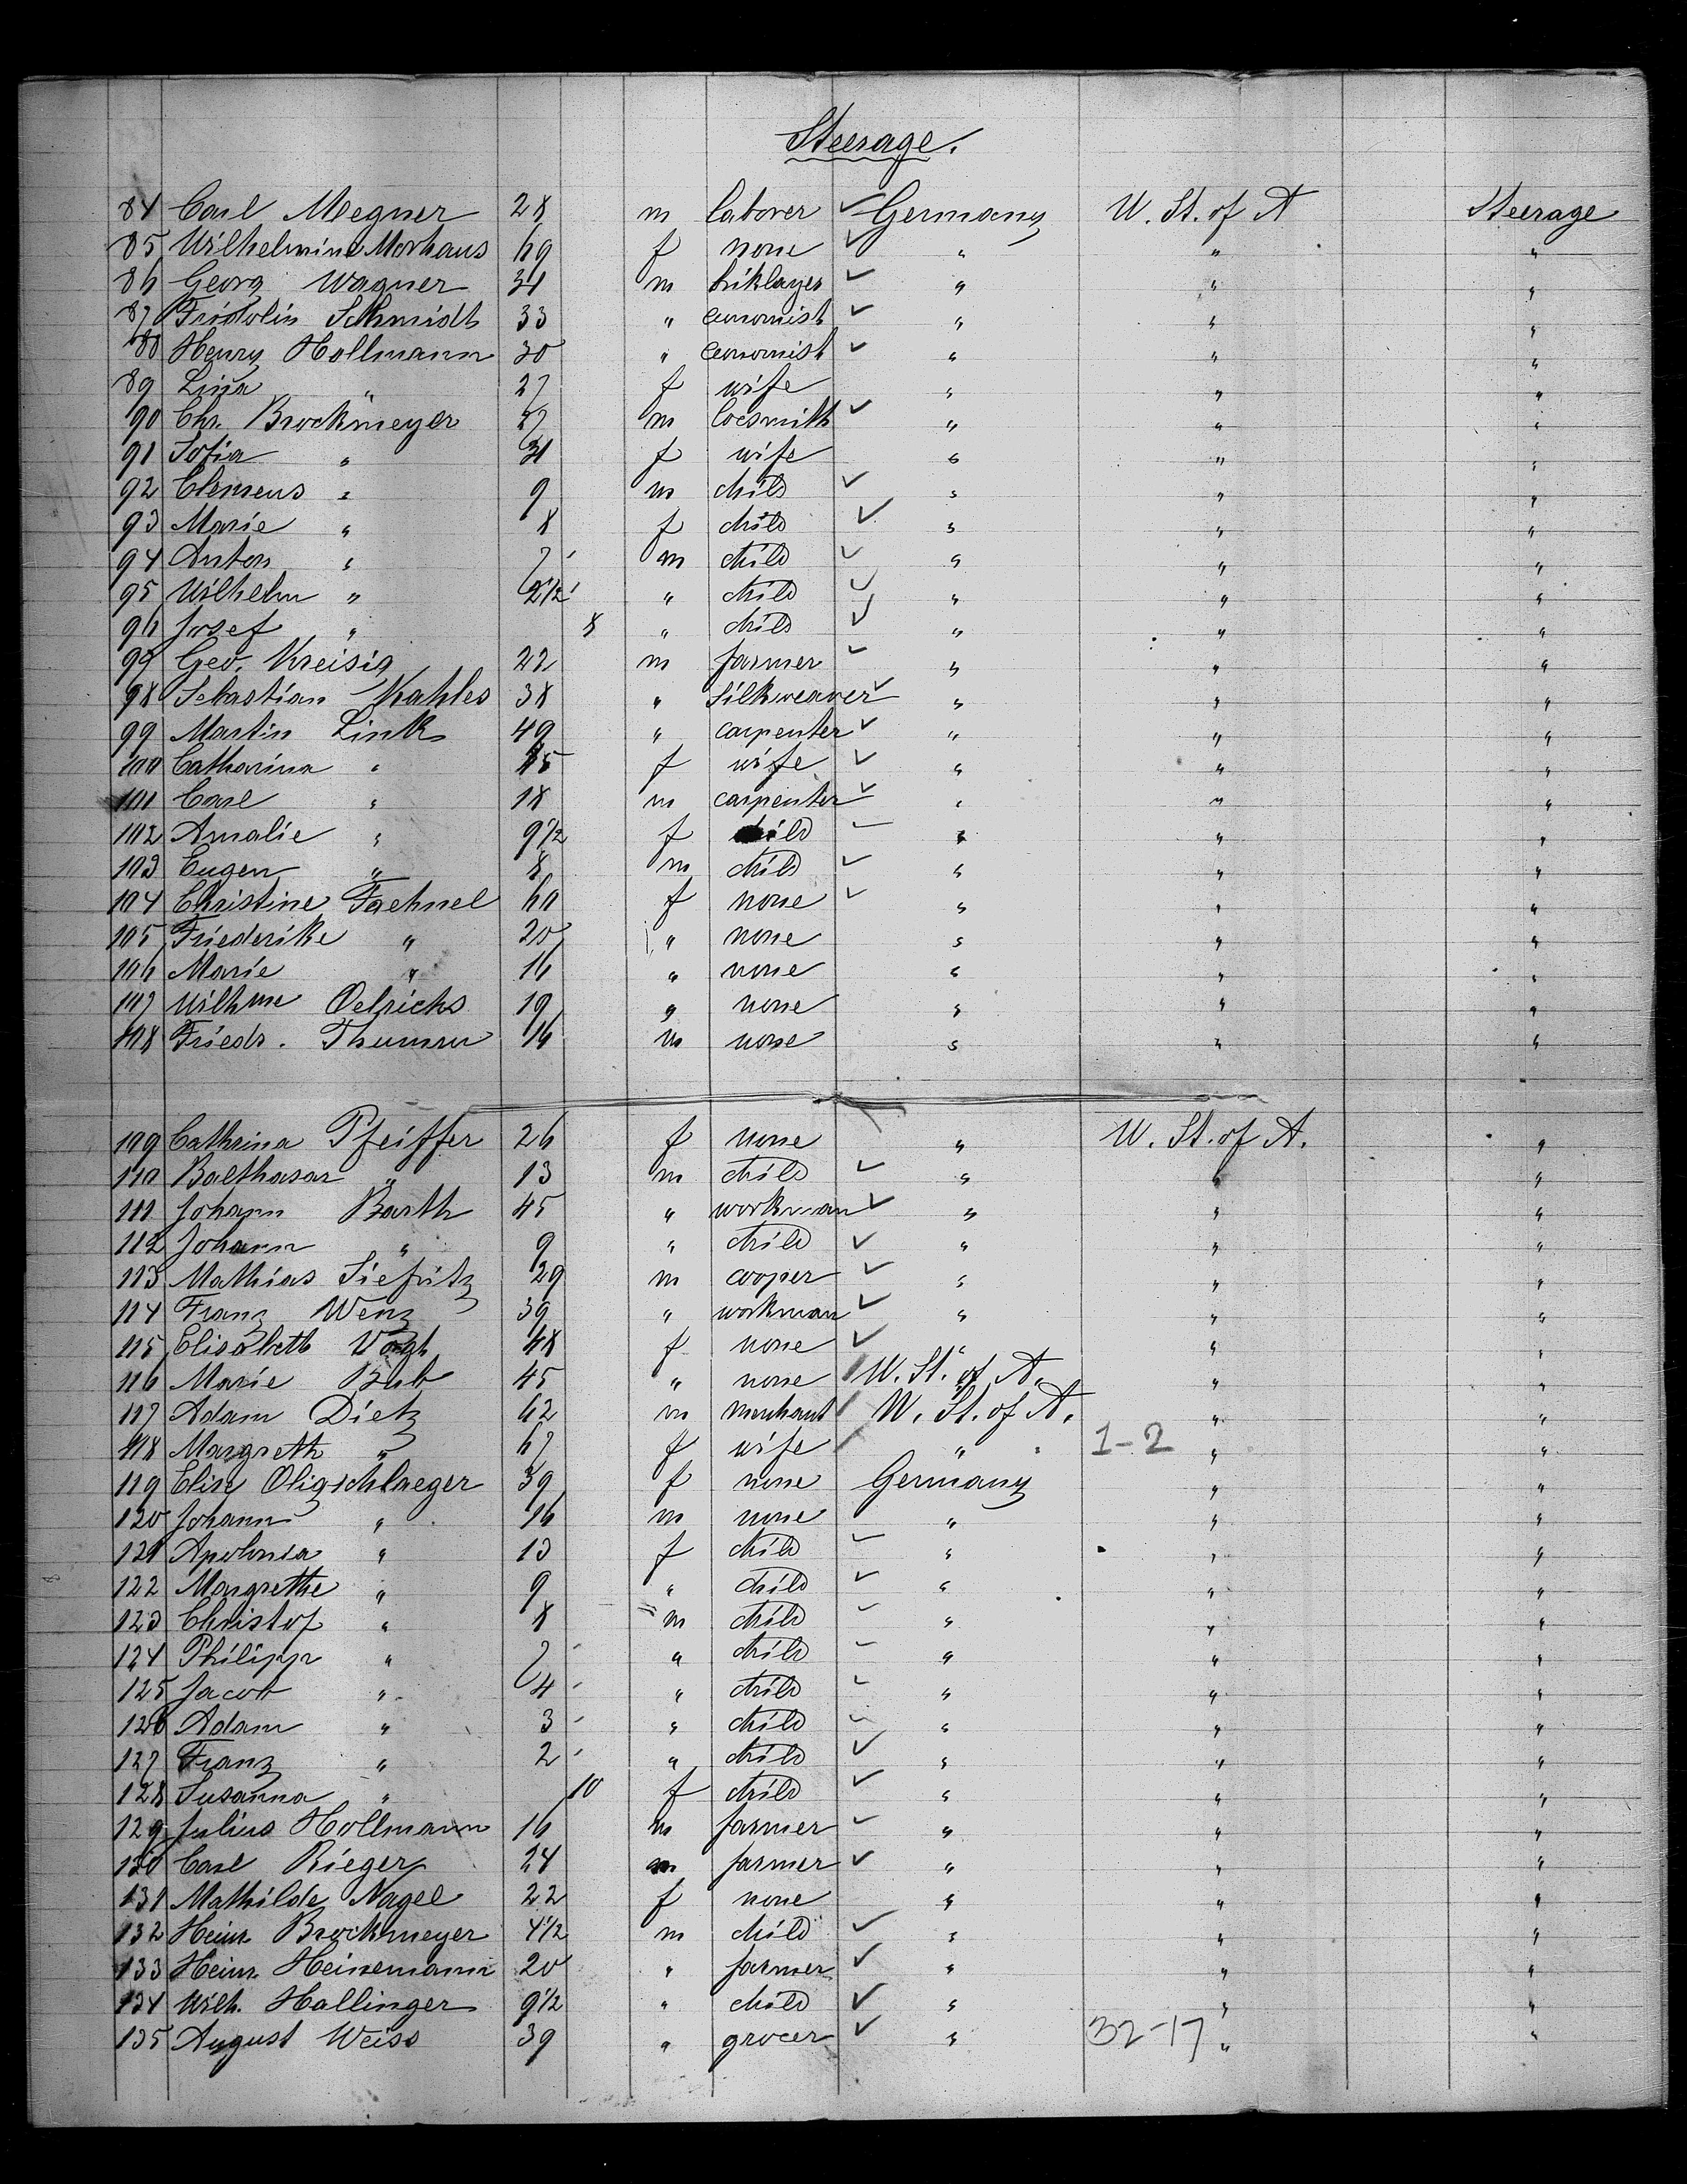 Steerage.
84 Carl Megner 28 m laborer ✓ Germany U. St. of A Steerage
85 Wilhelmine Morhaus 69 f none ✓ " " "
86 Georg Wagner 34 m briklayer ✓ " " "
87 Fridolin Schmidt 33 " economist ✓ " " "
88 Henry Hollmann 30 " economist ✓ " " "
89 Lina " 27 f wife " " "
90 Chr. Brockmeyer 37 m locsmith ✓ " " "
91 Sofia " 31 f wife " " "
92 Clemens " 9 m child ✓ " " "
93 Marie " 8 f child ✓ " " "
94 Anton " 7 m child ✓ " " "
95 Wilhelm " 2 1/2 " child ✓ " " "
96 Josef " 8 " child ✓ " " "
97 Geo. Kreisig 22 m farmer ✓ " " "
98 Sebastian Kahles 38 " Silkweaver ✓ " " "
99 Martin Link 49 " carpenter ✓ " " "
100 Catharina " 45 f wife ✓ " " "
101 Carl " 18 m carpenter ✓ " " "
102 Amalie " 9 1/2 f child ✓ " " "
103 Eugen " 8 m child ✓ " " "
104 Christine Faehnel 60 f none ✓ " " "
105 Friederike " 20 " none " " "
106 Marie " 16 " none " " "
107 Wilhme Oelrichs 19 " none " " "
108 Friedr. 16 m none " " "
109 Cathrina Pfeiffer 26 f none " U. St. of A. "
110 Balthasar " 13 m child ✓ " " "
111 Johann Barth 45 " workman ✓ " " "
112 Johann " 9 " child ✓ " " "
113 Mathias Siefritz 29 m cooper ✓ " " "
114 Franz Wenz 39 " workman ✓ " " "
115 Elisabeth Vogt 48 f none ✓ " " "
116 Marie Bub 45 " none U. St. of A. " "
117 Adam Dietz 62 m merchant U. St. of A. " "
118 Margreth " 67 f wife " 1-2 " "
119 Elise Oligschlaeger 39 f none Germany " "
120 Johann " 16 m none " " "
121 Apolonia " 13 f child ✓ " " "
122 Margrethe " 9 " child ✓ " " "
123 Christof " 8 m child ✓ " " "
124 Philipp " 7 " child ✓ " " "
125 Jacob " 4 " child ✓ " " "
126 Adam " 3 " child ✓ " " "
127 Franz " 2 " child ✓ " " "
128 Susanna " 10 f child ✓ " " "
129 Julius Hollmann 16 m farmer ✓ " " "
130 Carl Rieger 24 m farmer ✓ " " "
131 Mathilde Nagel 22 f none " " "
132 Heinr. Brockmeyer 4 1/2 m child ✓ " " "
133 Heinr. Heinemann 20 " farmer ✓ " " "
134 Wilh. Hallinger 9 1/2 " child ✓ " " "
135 August Weiss 39 " grocer ✓ " 32-17 " "